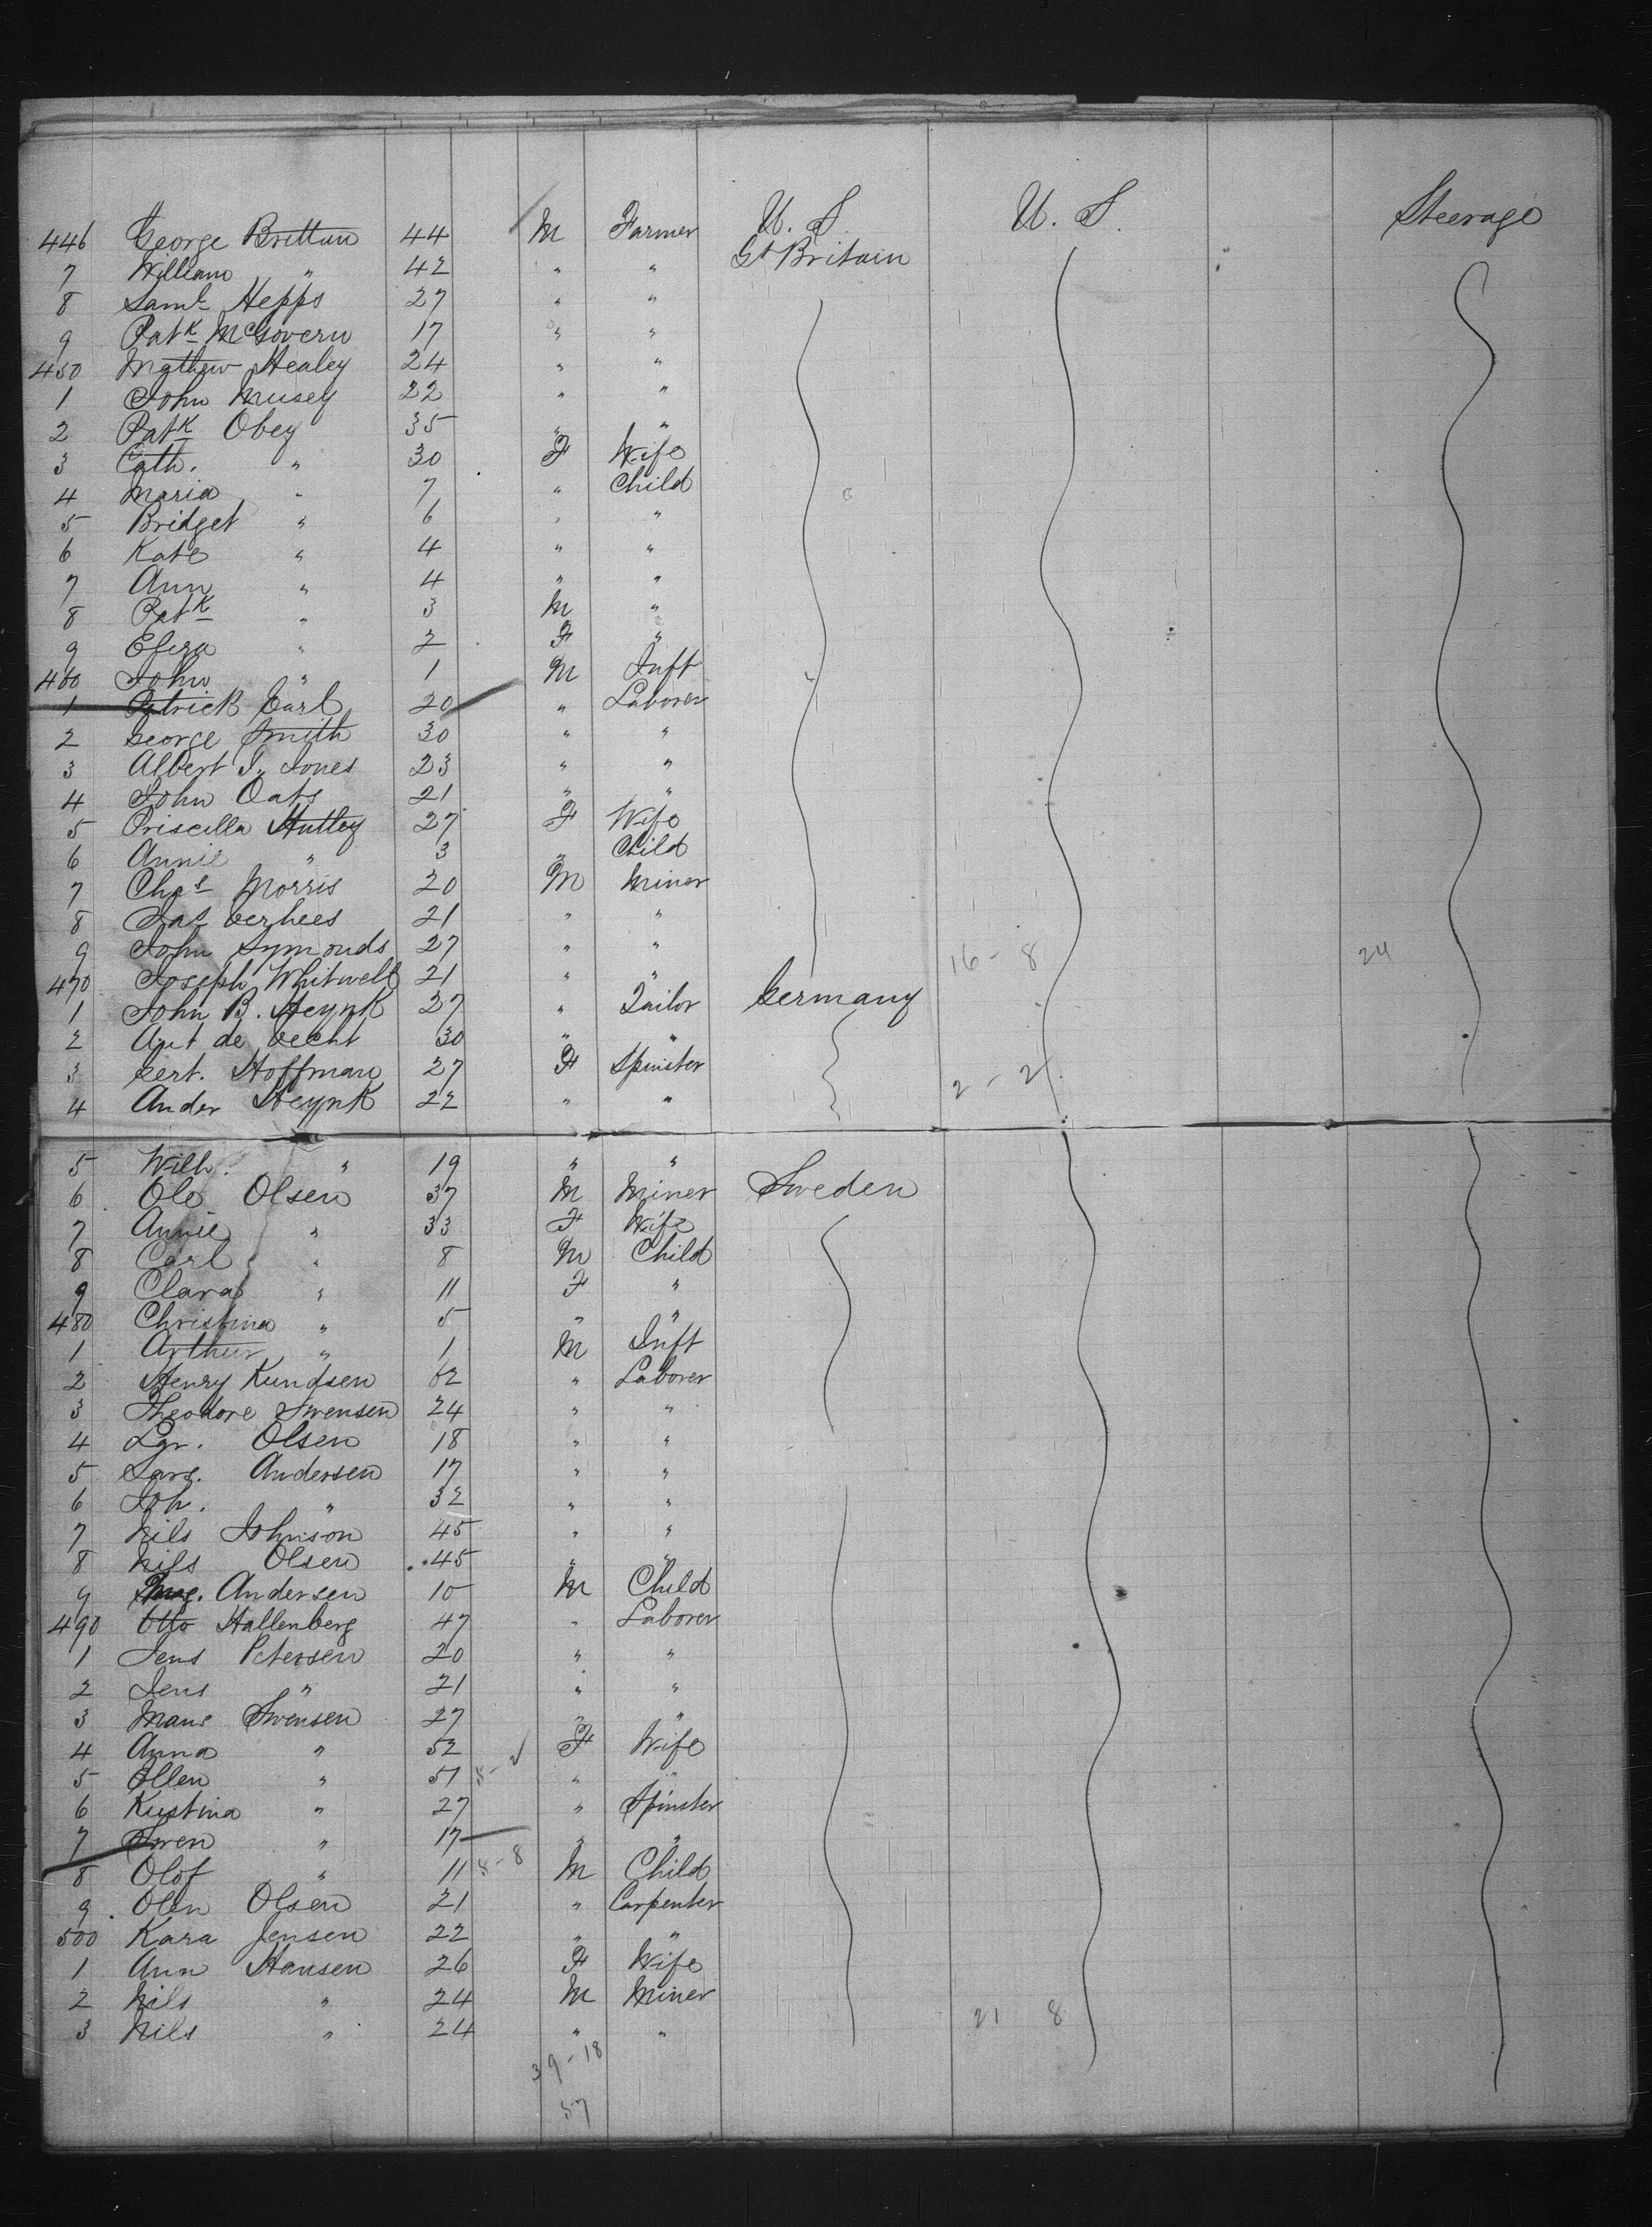 446 George Brittan 44 M Farmer U. S. U. S. Steerage
7 William " 42 " " Gt Britain
8 Saml Hepps 27 " "
9 Patk McGovern 17 " "
450 Mathew Healey 24 " "
1 John Musey 22 " "
2 Patk Obey 35 " "
3 Cath. " 30 F Wife
4 Maria " 7 " Child
5 Bridget " 6 " "
6 Kate " 4 " "
7 Ann " 4 " "
8 Patk " 3 M "
9 Eliza " 2 F "
460 John " 1 M Inft
1 Patrick Earl 20 " Laborer
2 George Smith 30 " "
3 Albert J. Jones 23 " "
4 John Oats 21 " "
5 Priscilla Hutley 27 F Wife
6 Annie " 3 " Child
7 Chas Morris 20 M Miner
8 Jas Verhees 21 " "
9 John Symonds 27 " " 16 - 8 24
470 Joseph Whitwell 21 " "
1 John B. Heynk 27 " Tailor Germany
2 Ant de Vecht 30 " "
3 Gert. Hoffman 27 F Spinster 2 - 2
4 Ander Heynk 22 " "
5 Wilh. " 19 " "
6 Ole Olsen 37 M Miner Sweden
7 Annie " 33 F Wife
8 Carl " 8 M Child
9 Clara " 11 F "
480 Christina " 5 " "
1 Arthur " 1 M Inft
2 Henry Kundsen 62 " Laborer
3 Theodore Swensen 24 " "
4 Lar. Olsen 18 " "
5 Lars. Andersen 17 " "
6 Joh. " 32 " "
7 Nils Johnson 45 " "
8 Nils Olsen 45 " "
9 Andersen 10 M Child
490 Otto Hallenberg 47 " Laborer
1 Jens Petersen 20 " "
2 Jens " 21 " "
3 Mans Swensen 27 " "
4 Anna " 52 F Wife
5 Ellen " 51 " "
6 Kustina " 27 " Spinster
7 Swen " 17 " "
8 Olof " 11 8-8 M Child
9 Olen Olsen 21 " Carpenter
500 Kara Jensen 22 " "
1 Ann Hansen 26 F Wife
2 Nils " 24 M Miner
3 Nils " 24 " " 21 8
39 - 18
57